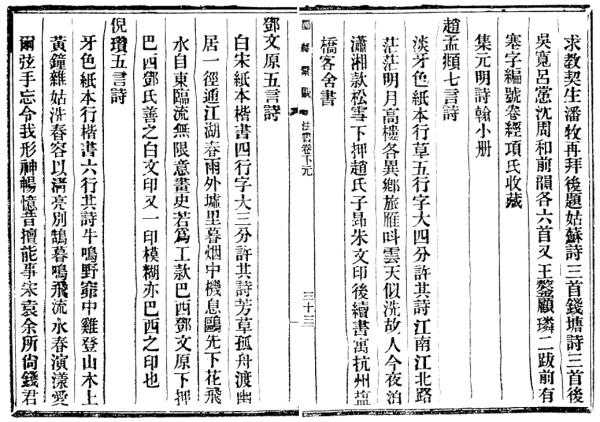 求教契生潘牧再拜後題姑蘇詩三首錢塘詩三首後
吳寬呂㦂沈周和前韻各六首又王鏊顧璘二跋前有
寒字編號卷經項氏收藏
集元明詩翰小册
趙孟頫七言詩
淡牙色紙本行草五行字大四分許其詩江南江北路
茫茫明月高樓各異鄉旅雁呌雲天似洗故人今夜泊
瀟湘款松雪下押趙氏子昻朱文印後續書寓杭州鹽
橋客舍書
墨緣彙觀 法書卷下元 三十三
鄧文原五言詩
白宋紙本楷書四行字大三分許其詩芳草孤舟渡幽
居一徑通江湖春雨外墟里暮烟中機息鷗先下花飛
水自東臨流無限意畫史若爲工款巴西鄧文原下押
巴西鄧氏善之白文印又一印模糊亦巴西之印也
倪瓚五言詩
牙色紙本行楷書六行其詩牛鳴野窌中雞登山木上
黃鐘雜姑洗春容以清亮別鵠暮鳴飛流水春演漾愛
爾弦手忘令我形神暢憶昔擅能事宋袁余所尙錢君